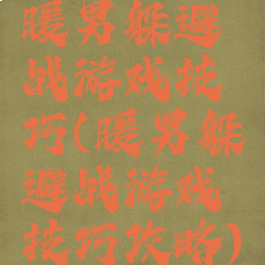 暖男躲避
战游戏技
巧(暖男躲
避战游戏
技巧攻略)